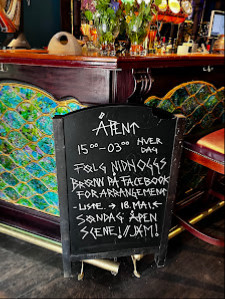 ÅPENT
15⁰⁰-03⁰⁰ HVER DAG
FØLG NIDHOGGS
BRØNN PÅ FACEBOOK
FOR ARRANGEMENT
-LISTE. → 18. MAI.
SØNDAG ÅPEN
SCENE!//JAM!